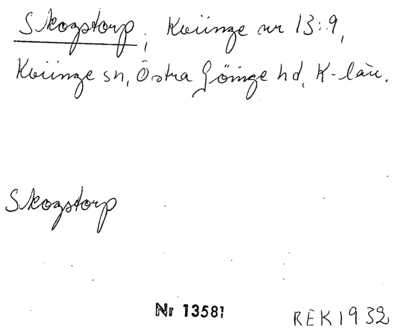 Skogstorp, Kviinge nr 13:9,
Kviinge sn, Östra Göinge hd, K-län.
Skogstorp
Nr 13581
REK 1932